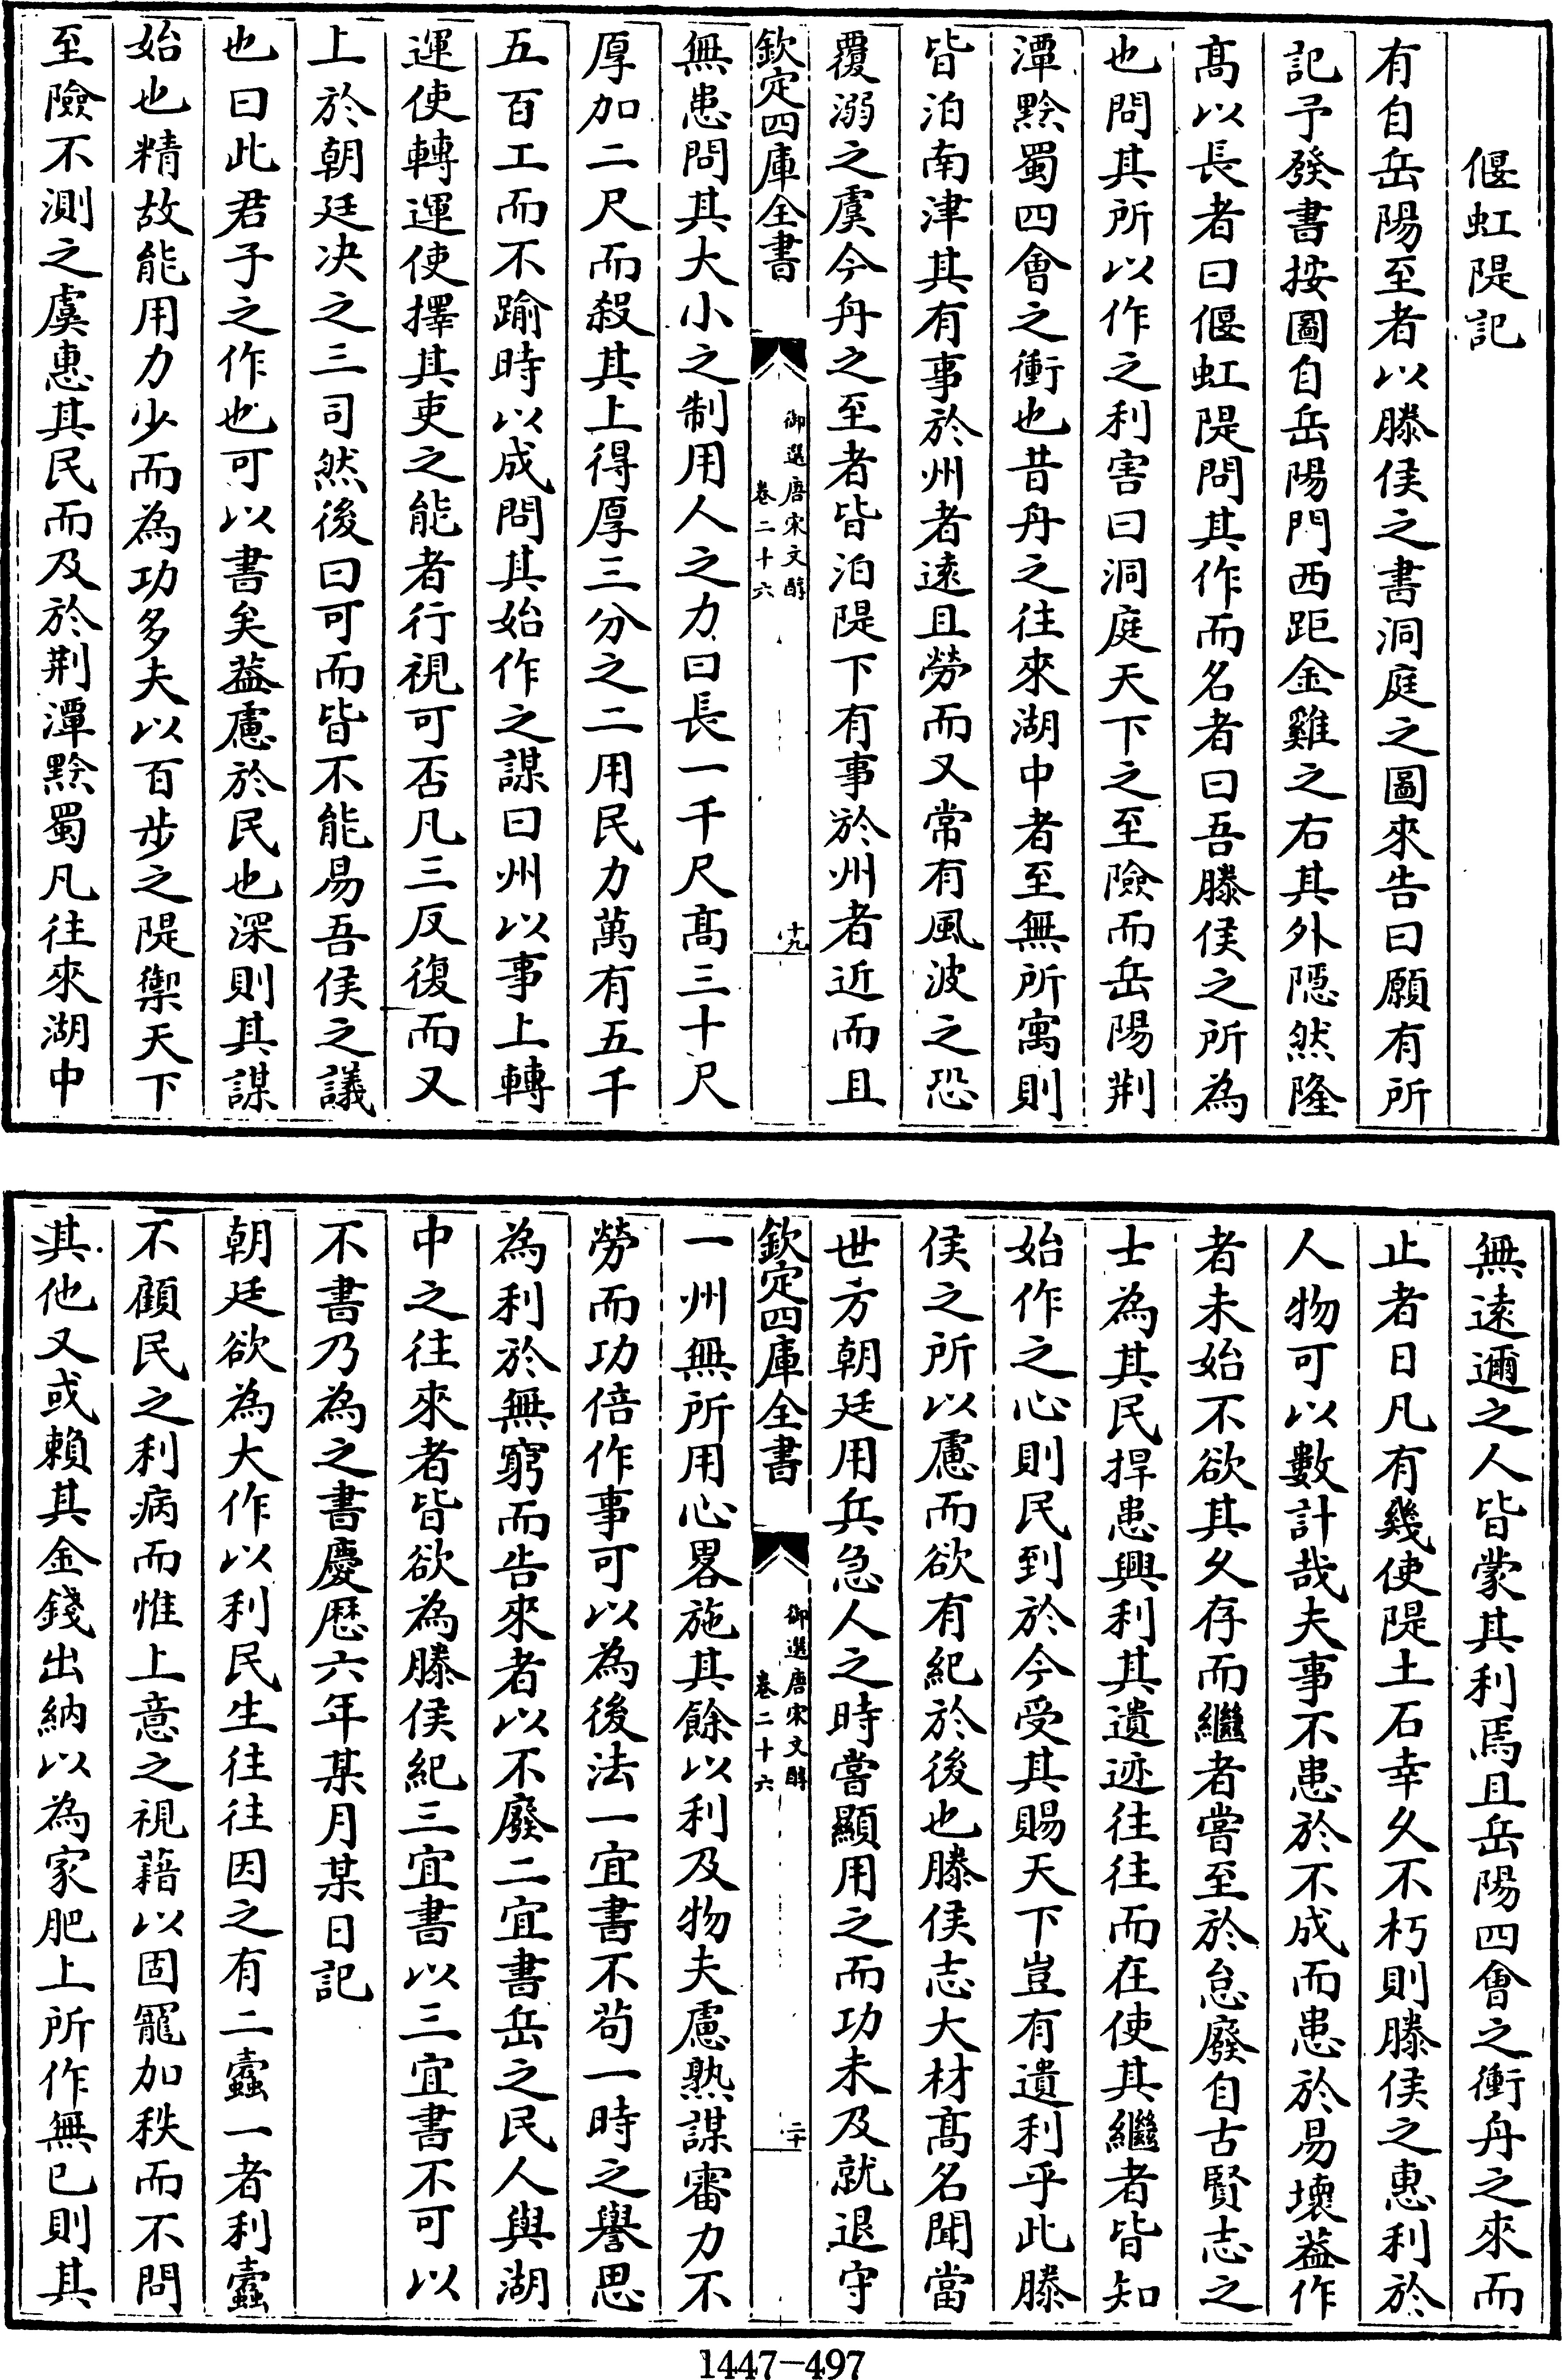 偃虹隄記
有自岳陽至者以滕侯之書洞庭之圖來告曰願有所
記予發書按圖自岳陽門西距金雞之右其外隱然隆
髙以長者曰偃虹隄問其作而名者曰吾滕侯之所為
也問其所以作之利害曰洞庭天下之至險而岳陽荆
潭黔蜀四會之衝也昔舟之往來湖中者至無所寓則
皆泊南津其有事於州者逺且勞而又常有風波之恐
覆溺之虞今舟之至者皆泊隄下有事於州者近而且
欽定四庫全書
御選唐宋文醇
卷二十六
十九
無患問其大小之制用人之力曰長一千尺髙三十尺
厚加二尺而殺其上得厚三分之二用民力萬有五千
五百工而不踰時以成問其始作之謀曰州以事上轉
運使轉運使擇其吏之能者行視可否凡三反復而又
上於朝廷决之三司然後曰可而皆不能易吾侯之議
也曰此君子之作也可以書矣葢慮於民也深則其謀
始也精故能用力少而為功多夫以百步之隄禦天下
至險不測之虞惠其民而及於荆潭黔蜀凡往來湖中
無逺邇之人皆蒙其利焉且岳陽四會之衝舟之來而
止者日凡有幾使隄土石幸久不朽則滕侯之惠利於
人物可以數計哉夫事不患於不成而患於易壞葢作
者未始不欲其久存而繼者嘗至於怠廢自古賢志之
士為其民捍患興利其遺迹往往而在使其繼者皆知
始作之心則民到於今受其賜天下豈有遺利乎此滕
侯之所以慮而欲有紀於後也滕侯志大材髙名聞當
世方朝廷用兵急人之時嘗顯用之而功未及就退守
欽定四庫全書
御選唐宋文醇
卷二十六
二十
一州無所用心畧施其餘以利及物夫慮熟謀審力不
勞而功倍作事可以為後法一宜書不苟一時之譽思
為利於無窮而告來者以不廢二宜書岳之民人與湖
中之往來者皆欲為滕侯紀三宜書以三宜書不可以
不書乃為之書慶歴六年某月某日記
朝廷欲為大作以利民生往往因之有二蠧一者利蠧
不顧民之利病而惟上意之視藉以固寵加秩而不問
其他又或賴其金錢出納以為家肥上所作無已則其
1447-497